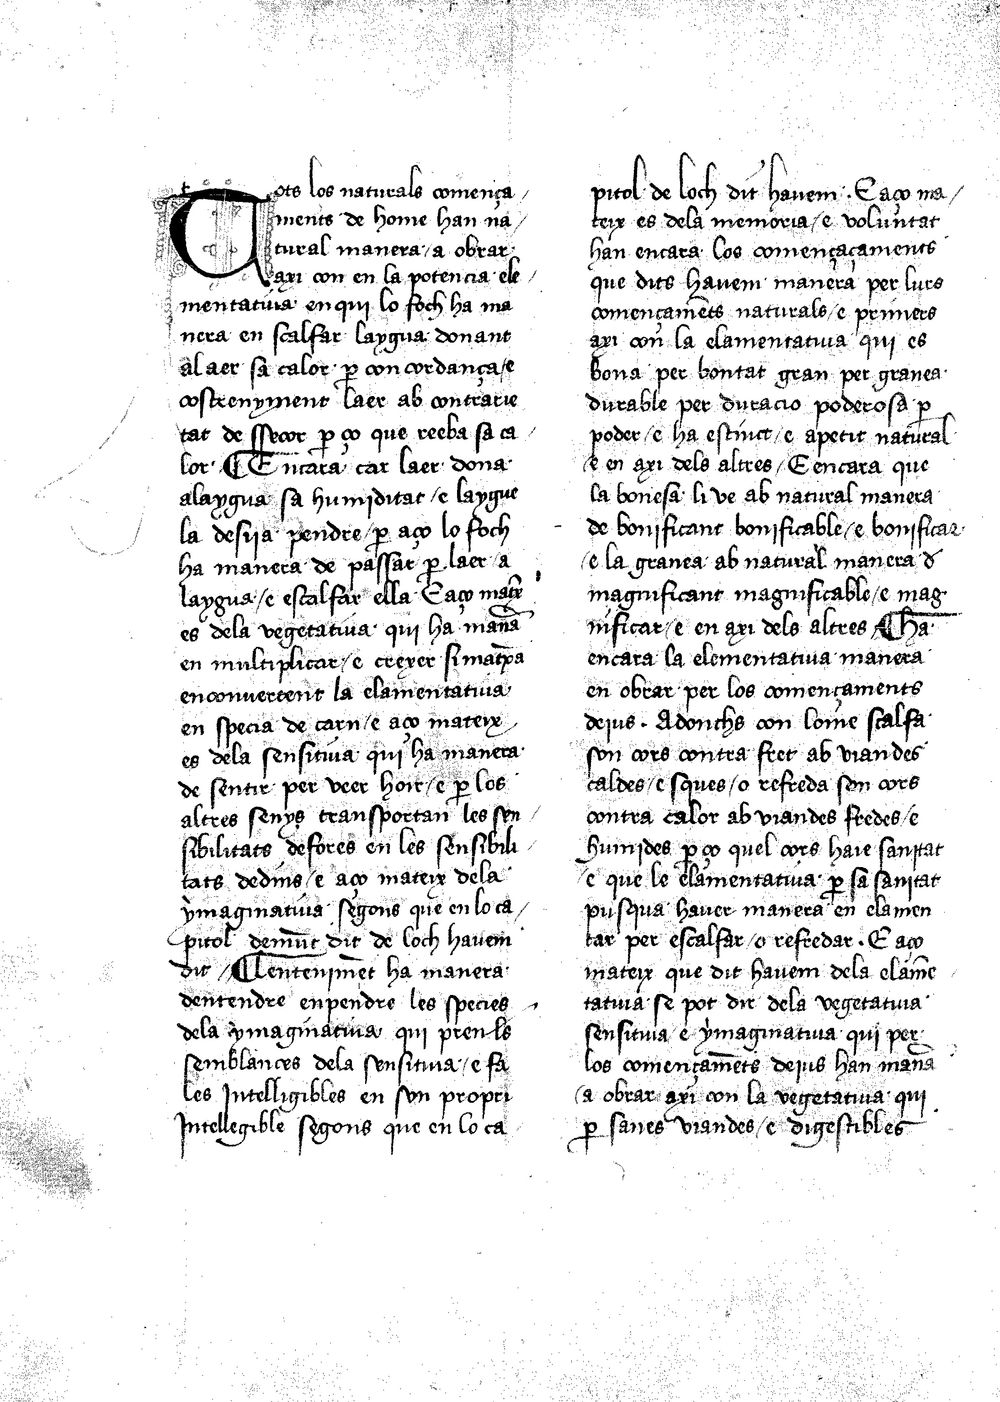 Tots los naturals comença /
ments de home han na /
tural manera / a obrar
axi con en la potencia ele /
mentatiua en qui lo foch ha ma
nera en scalfar laygua donant
al aer sa calor p̱ concordança / e
costrenyment laer ab contrarie
tat de ssecor p̱ ço que reeba sa ca
lor · ¶ Encara car laer dona
alaygua sa humiditat / e laygue
la desiia pendre / p̱ aço lo foch
ha manera de passar p̱ laer / a
laygua / e escalfar ella E aço matex̄
es dela vegetatiua qui ha man̄a
en multiplicar / e crexer si matexa
en conuertent la elamentatiua
en specia de carn / e aço mateix /
es dela sensitiua qui ha manera
de sentir per veer hoir / e p̱ los
altres senys transportan les sen /
sibilitats defores en les sensibili /
tats dedins / e aço mateix dela
ẏmaginatiua segons que en lo ca /
pitol demūt dit de loch hauem
dit / ¶ Lentenimēt ha manera
dentendre enpendre les species
dela ẏmaginatiua qui pren les
semblances dela sensitiua / e fa
les Intelligibles en son propri
Intellegible segons que en lo ca
pitol de loch dit hauem · E aço ma /
teix es dela memoria / e voluntat
han encara los començaçaments
que dits hauem manera per lurs
comencamēts naturals / e primers
axi con la elamentatiua qui es
bona per bontat gran per granea
durable per duracio poderosa p̱
poder / e ha estinct / e apetit natural
/ e en axi dels altres / E encara que
la bonesa li ve ab natural manera
de bonificant bonificable / e bonificar
/ e la granea ab natural manera d̄
magnificant magnificable / e mag
nificar / e en axi dels altres ¶ Ha
encara la elementatiua manera
en obrar per los començaments
dejus · Adonchs con lome scalfa
son cors contra fret ab viandes
caldes / e sques / o refreda son cors
contra calor ab viandes fredes / e
humides p̱ ço quel cors haie sanitat
/ e que le elamentatiua p̱ sa sanitat
pusqua hauer manera en elamen
tar per escalfar / o refredar · E aço
mateix que dit hauem dela elamē
tatiua se pot dir dela vegetatiua
sensitiua e ẏmaginatiua qui per
los començamēts dejus han man̄a
/ a obrar axi con la vegetatiua qui
p̱ sanes viandes / e digestibles